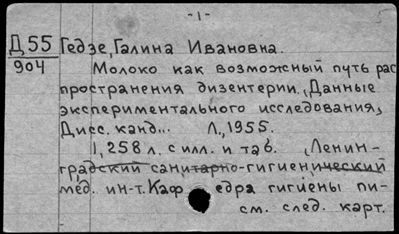 -1-
Д 55 Гедзе, Галина Ивановна.
904 Молоко как возможный путь рас
пространения дизентерии. „Данные
экспериментального исследования„
Дисс. канд... Л., 1955.
1, 258 л. с илл. и таб. „Ленин-
градский санитарно-гигиенический
мед. ин-т. Кафедра гигиены пи-
см. след. карт.